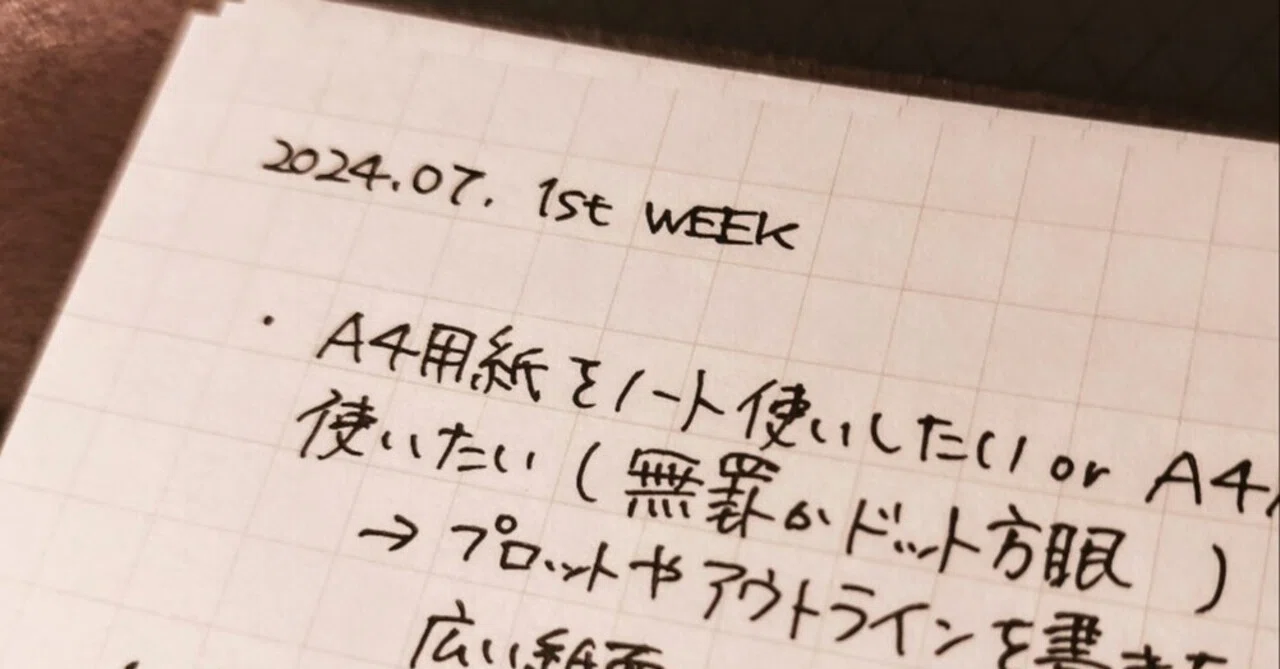 2024.07. 1st WEEK
・ A4用紙をノート使いしたい or A4
使いたい (無罫かドット方眼 )
→ プロットやアウトラインを書き
広い紙面